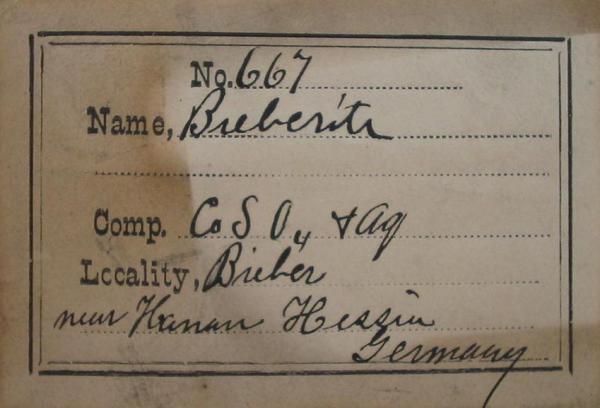 No. 667
Name, Bieberite
Comp. CoSO4 + aq
Locality, Bieber
near Hanau Hessin
Germany